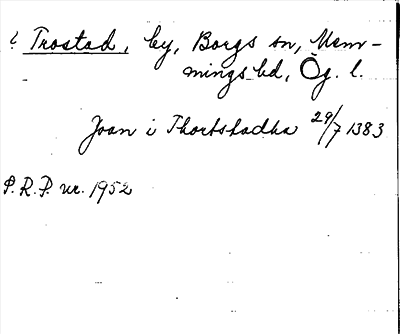 ? Trostad, by, Borgs sn, Mem-
mings hd, Ög. l.
Joan i Thorbstadha 29/7 1383
P. R. P. nr. 1952